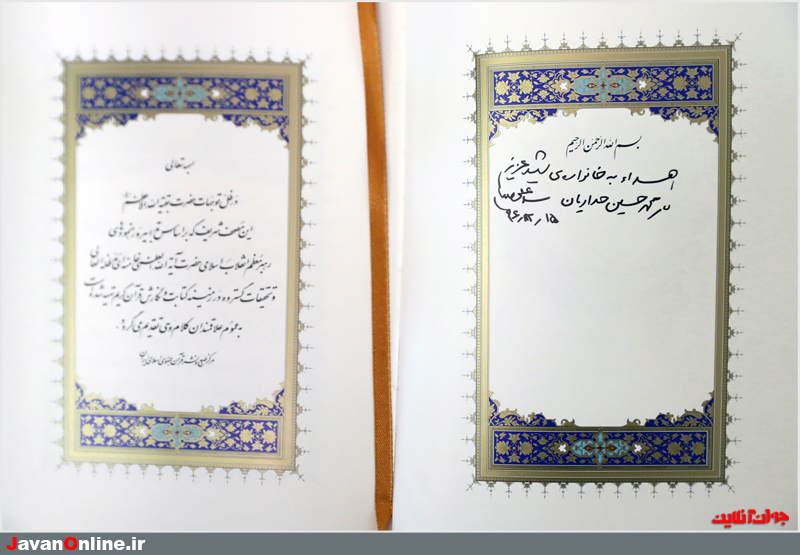 بسم الله الرحمن الرحیم
اهداء به خانواده‌ی شهید عزیز
محمد حسین حدادیان سید علی
۹۶/۱۲/۱۵
بسمه تعالی
در ظل توجهات حضرت بقیة الله الاعظم
این مصحف شریف که بر اساس تدابیر و رهنمودهای
رهبر معظم انقلاب اسلامی حضرت آیة الله العظمی خامنه‌ای مدظله العالی
و تحقیقات گسترده در زمینه کتابت و نگارش قرآن کریم تهیه شده است
به عموم علاقمندان کلام وحی تقدیم می گردد.
مرکز طبع و نشر قرآن جمهوری اسلامی ایران
جوان آنلاین
JavanOnline.ir
JavanOnline.ir